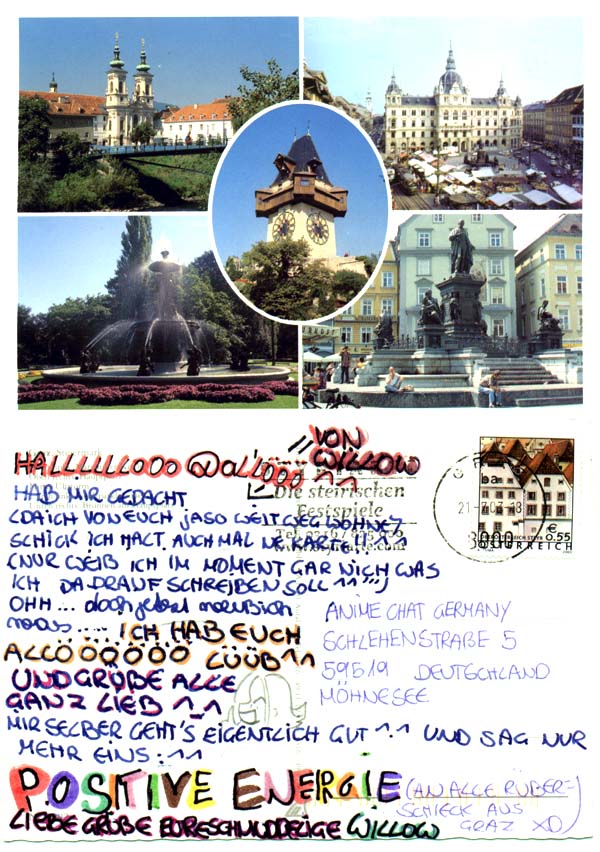 HALLLLLLOOO @ allööö ^^
VON WILLOW
HAB MIR GEDACHT
(DA ICH VON EUCH JA SO WEIT WEG WOHNE)
SCHICK ICH HALT AUCH MAL NE KARTE!! ^^
(NUR WEIß ICH IM MOMENT GAR NICH WAS
ICH DA DRAUF SCHREIBEN SOLL ^^''')
OHH... doch jetzt
.... ICH HAB EUCH
ALLÖÖÖÖÖÖ LÜÜB ^^
UND GRÜßE ALLE
GANZ LIEB ^.^
MIR SELBER GEHT'S EIGENTLICH GUT ^.^ UND SAG NUR
MEHR EINS: ^^
POSITIVE ENERGIE
(AN ALLE RÜBER-
SCHIECK AUS
GRAZ XD)
LIEBE GRÜßE EURE SCHMUDDELIGE WILLOW
Die steirischen
Festspiele
€ 0,55
ÖSTERREICH
ANIME CHAT GERMANY
SCHLEHENSTRAßE 5
59519 DEUTSCHLAND
MÖHNESEE